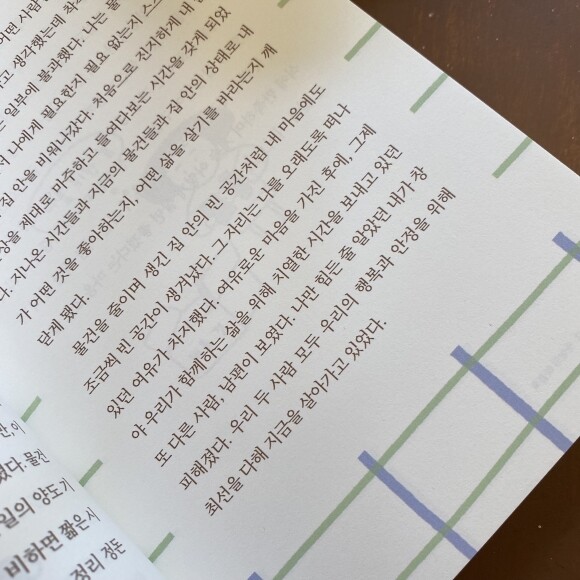 어떤 사람
고 생각했는데 착각
일부에 불과했다. 나는 물
나에게 필요한지 필요 없는지 스스
집 안을 비워나갔다. 처음으로 진지하게 내
상을 제대로 마주하고 들여다보는 시간을 갖게 되었
다. 지나온 시간들과 지금의 물건들과 집 안의 상태로 내
가 어떤 것을 좋아하는지, 어떤 삶을 살기를 바라는지 깨
닫게 됐다.
물건을 줄이며 생긴 집 안의 빈 공간처럼 내 마음에도
조금씩 빈 공간이 생겨났다. 그 자리는 나를 오래도록 떠나
있던 여유가 차지했다. 여유로운 마음을 가진 후에, 그제
야 우리가 함께하는 삶을 위해 치열한 시간을 보내고 있던
또 다른 사람, 남편이 보였다. 나만 힘든 줄 알았던 내가 창
피해졌다. 우리 두 사람 모두 우리의 행복과 안정을 위해
최선을 다해 지금을 살아가고 있었다.
만, 이
였다. 물건
일의 양도 기
비하면 짧은 시
정리 정돈